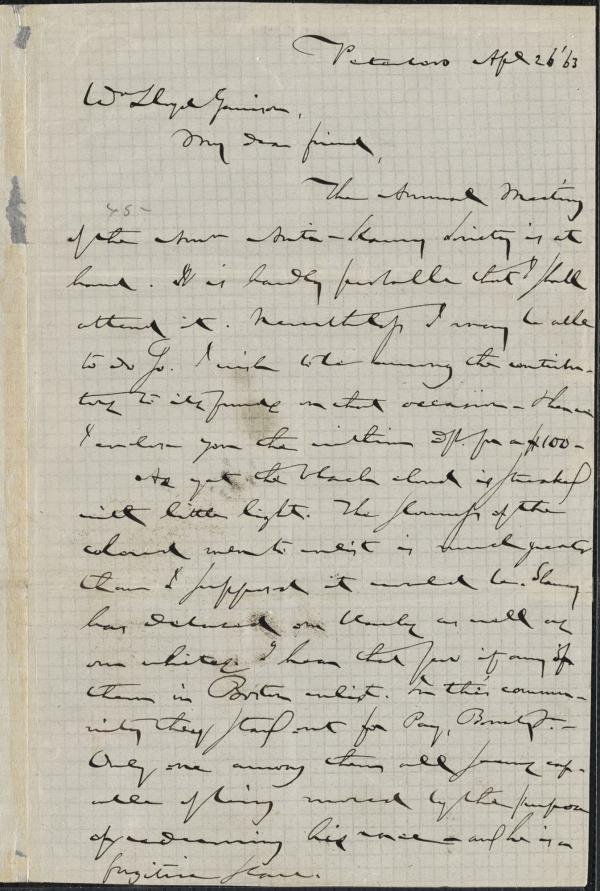 Peterboro Apl 26 '63
Wm Lloyd Garrison,
My dear friend,
The Annual Meeting
45-
of the Amn Anti-Slavery Society is at
hand. It is hardly probable that I shall
attend it. Nevertheless I may be able
to do so. I wish to be among the contribu-
tors to its funds on that occasion - Hence
I enclose you the within Dft. for $100-
As yet the black cloud is streaked
with little light. The slowness of the
colored men to enlist is much greater
than I supposed it would be. Slavery
has debased our blacks as well as
our whites. I hear that few if any of
them in Boston enlist. In this commu-
nity they stand out for Pay, Bounty &c. -
Only one among them all seems cap-
able of being moved by the purpose
of redeeming his race - and he is a
fugitive slave.